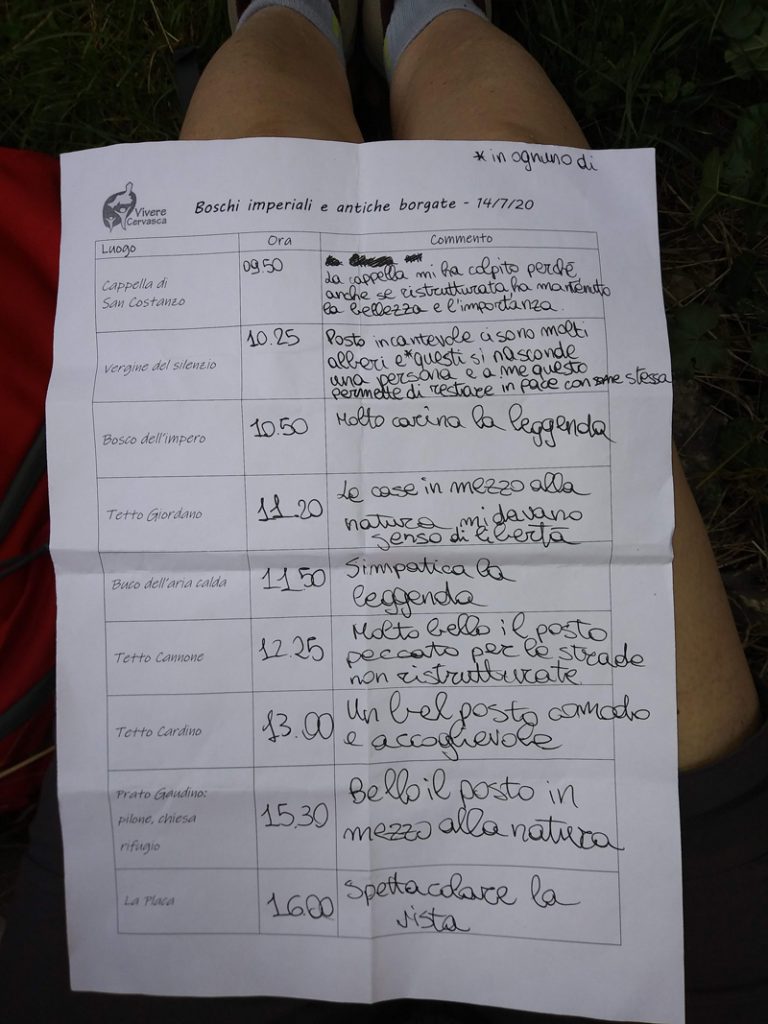 * in ognuno di
Vivere
Cervasca
Boschi imperiali e antiche borgate - 14/7/20
Luogo
Ora
Commento
Cappella di
San Costanzo
09.50
La cappella mi ha colpito perché
anche se ristrutturata ha mantenuto
la bellezza e l'importanza.
Vergine del silenzio
10.25
Posto incantevole ci sono molti
alberi e*questi si nasconde
una persona e a me questo
permette di restare in pace con me stessa
Bosco dell'impero
10.50
Molto carina la leggenda
Tetto Giordano
11.20
Le case in mezzo alla
natura mi davano
senso di libertà
Buco dell'aria calda
11.50
Simpatica la
leggenda
Tetto Cannone
12.25
Molto bello il posto
peccato per le strade
non ristrutturate
Tetto Cardino
13.00
Un bel posto comodo
e accoglievole
Prato Gaudino:
pilone, chiesa
rifugio
15.30
Bello il posto in
mezzo alla natura
La Placa
16.00
Spettacolare la
vista